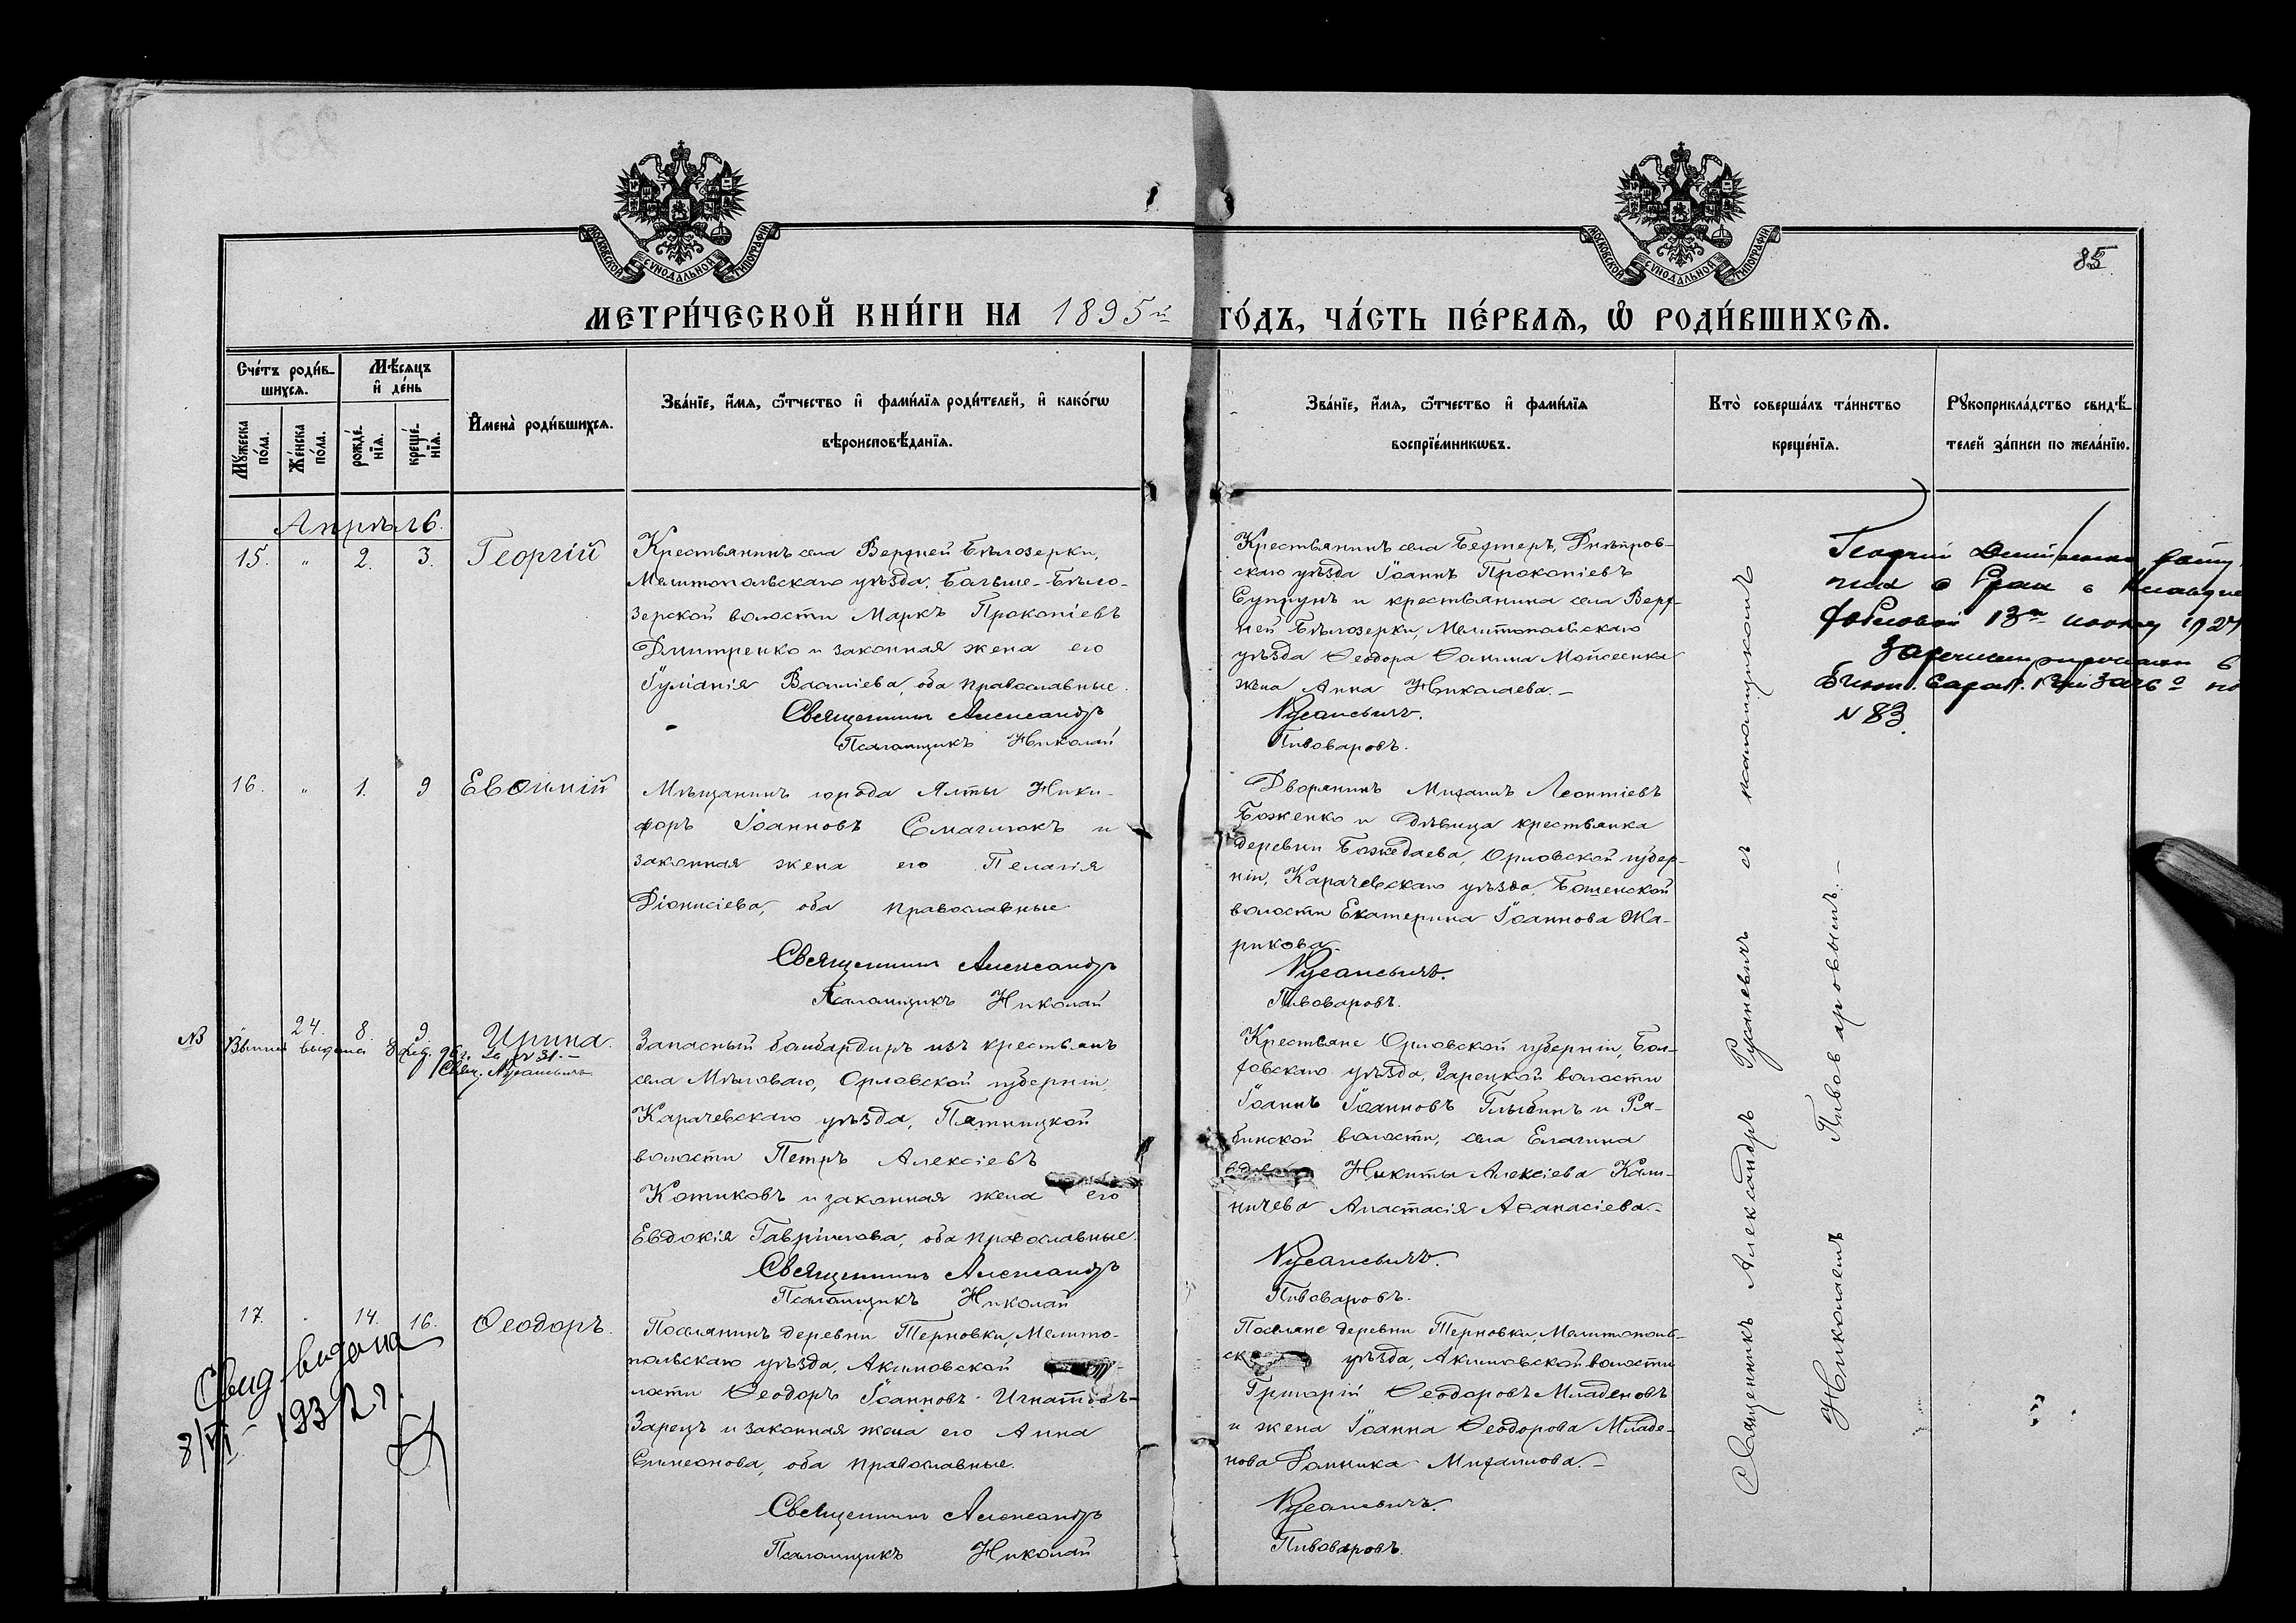 МОСКОВСКОЙ СѴНОДАЛЬНОЙ ТИПОГРАФІИ
МОСКОВСКОЙ СѴНОДАЛЬНОЙ ТИПОГРАФІИ
85
МЕТРИ́ЧЕСКОЙ КНИ́ГИ НА 1895й ГО́ДЪ, ЧА́СТЬ ПЕ́РВАѦ, Ѡ РОДИ́ВШИХСѦ.
Сче́тъ роди́в-
шихсѧ.
Мѣ́сѧцъ
и҆ де́нь
Мꙋ́жеска по́ла.
Же́нска по́ла.
рожде́-
нїѧ.
креще́-
нїѧ.
И҆мена̀ роди́вшихсѧ.
Зва́нїе, и҆́мѧ, ѻ҆́тчество и҆ фами́лїѧ роди́телей, и҆ како́гѡ
вѣроисповѣ́данїѧ.
Зва́нїе, и҆́мѧ, ѻ҆́тчество и҆ фами́лїѧ
воспрїе́мникѡвъ.
Кто̀ соверша́лъ та́инство
креще́нїѧ.
Рꙋкоприкла́дство свидѣ́-
телей за́писи по жела́нїю.
Апрѣль.
15. " 2. 3. Георгій
Крестьянинъ села Верхней Бѣлозерки,
Мелитопольскаго уѣзда, Больше-Бѣло-
зерской волости Маркъ Прокопіевъ
Дмитренко и законная жена его
Іуліанія Василіева, оба православные.
Священникъ Александръ
Псаломщикъ Николай
Крестьянинъ села Бехтеръ, Днѣпров-
скаго уѣзда Іоаннъ Прокопіевъ
Супрунъ и крестьянина села Верх-
ней Бѣлозерки, Мелитопольскаго
уѣзда Ѳеодора Ѳомина Мойсеенка
жена Анна Николаева.–
Русаневичъ.
Пивоваровъ.
Георгий
13го 1927
№ 83.
16. " 1. 9 Евѳимій
Мѣщанинъ города Ялты Ники-
форъ Іоанновъ Смаглюкъ и
законная жена его Пелагія
Діонисіева, оба православные
Священникъ Александръ
Псаломщикъ Николай
Дворянинъ Михаилъ Леонтіевъ
Боженко и дѣвица крестьянка
деревни Божедаева, Орловской губер-
ніи, Карачевскаго уѣзда, Бошенской
волости Екатерина Іоаннова Жа-
рикова.
Русаневичъ.
Пивоваровъ.
NB 24. 8 9 Ирина.
выдана за № 31.–
Свящ. Русаневичъ
Запасный бомбардиръ изъ крестьянъ
села Мѣловаго, Орловской губерніи
Карачевскаго уѣзда, Пятницкой
волости Петръ Алексіевъ
Котиковъ и законная жена его
Евдокія Гавріилова, оба православные.
Священникъ Александръ
Псаломщикъ Николай
Крестьяне Орловской губерніи, Бол-
ховскаго уѣзда, Зарецкой волости
Іоаннъ Іоанновъ Глыбинъ и Ря-
бинской волости, села Елагина
Никиты Алексіева Кали-
ничева Анастасія Аѳанасіева.–
Русаневичъ.
Пивоваровъ.
17. 14. 16. Ѳеодоръ.
Свид видана
8/VI 1932 г.
Поселянинъ деревни Терновки, Мелито-
польскаго уѣзда, Акимовской
лости Ѳеодоръ Іоанновъ Игнатовъ-
Зарецъ и законная жена его Анна
Симеонова, оба православные.
Священникъ Александръ
Псаломщикъ Николай
Поселяне деревни Терновки, Мелитополь-
уѣзда, Акимовской волости
Григорій Ѳеодоровъ Младеновъ
и жена Іоанна Ѳеодорова Младе-
нова Домника Михаилова.–
Русаневичъ.
Пивоваровъ.
Священникъ Александръ Русаневичъ съ псаломщикомъ
Николаемъ Пивоваровымъ.–